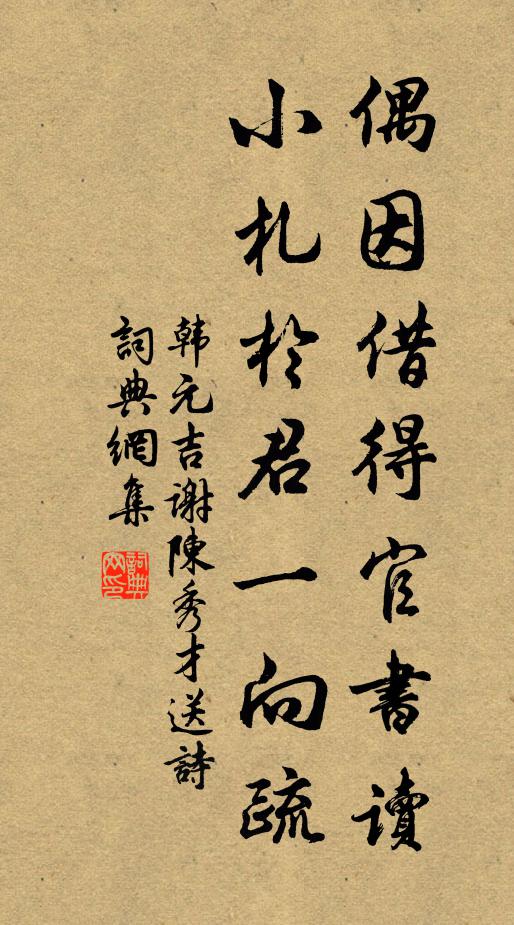 偶因借得官書讀
小札於君一向疏
韩元吉謝陳秀才送詩
詞典網集
詞典网印